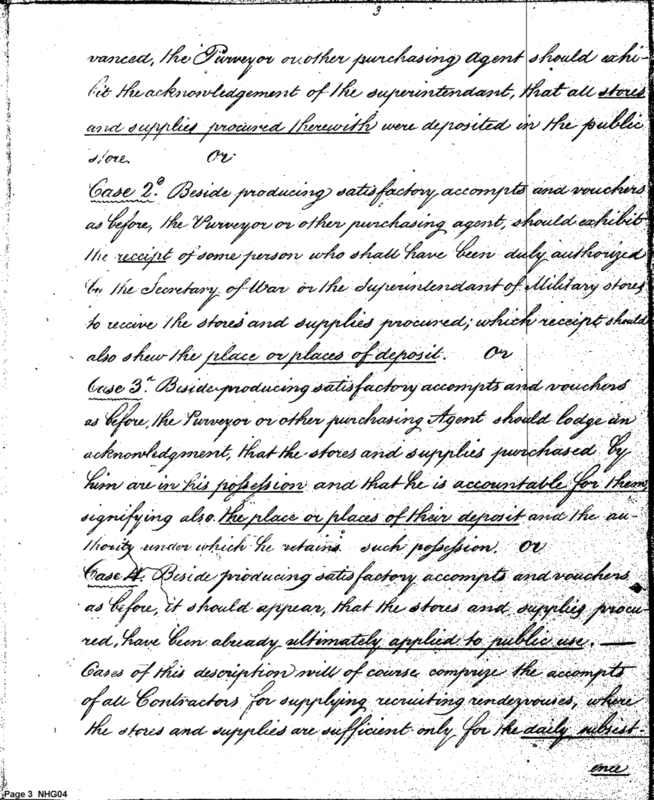 3
vanced, the Purveyor or other purchasing Agent should exhi-
bit the acknowledgement of the superintendant, that all stores
and supplies procured therewith were deposited in the public
store. Or
Case 2d. Beside producing satisfactory accompts and vouchers
as before, the Purveyor or other purchasing agent, should exhibit
the receipt of some person who shall have been duly authorized
by the Secretary of War or the Superintendant of Military stores
to receive the stores and supplies procured; which receipt should
also shew the place or places of deposit. Or
Case 3d. Beside producing satisfactory accompts and vouchers
as before, the Purveyor or other purchasing Agent should lodge an
acknowledgment, that the stores and supplies purchased by
him are in his possession and that he is accountable for them,
signifying also the place or places of their deposit and the au-
thority under which he retains such possession. Or
Case 4. Beside producing satisfactory accompts and vouchers
as before, it should appear, that the stores and supplies procu-
red, have been already ultimately applied to public use. —
Cases of this description will of course comprize the accompts
of all Contractors for supplying recruiting rendezvouses, where
the stores and supplies are sufficient only for the daily subsist-
ence
Page 3 NHG04